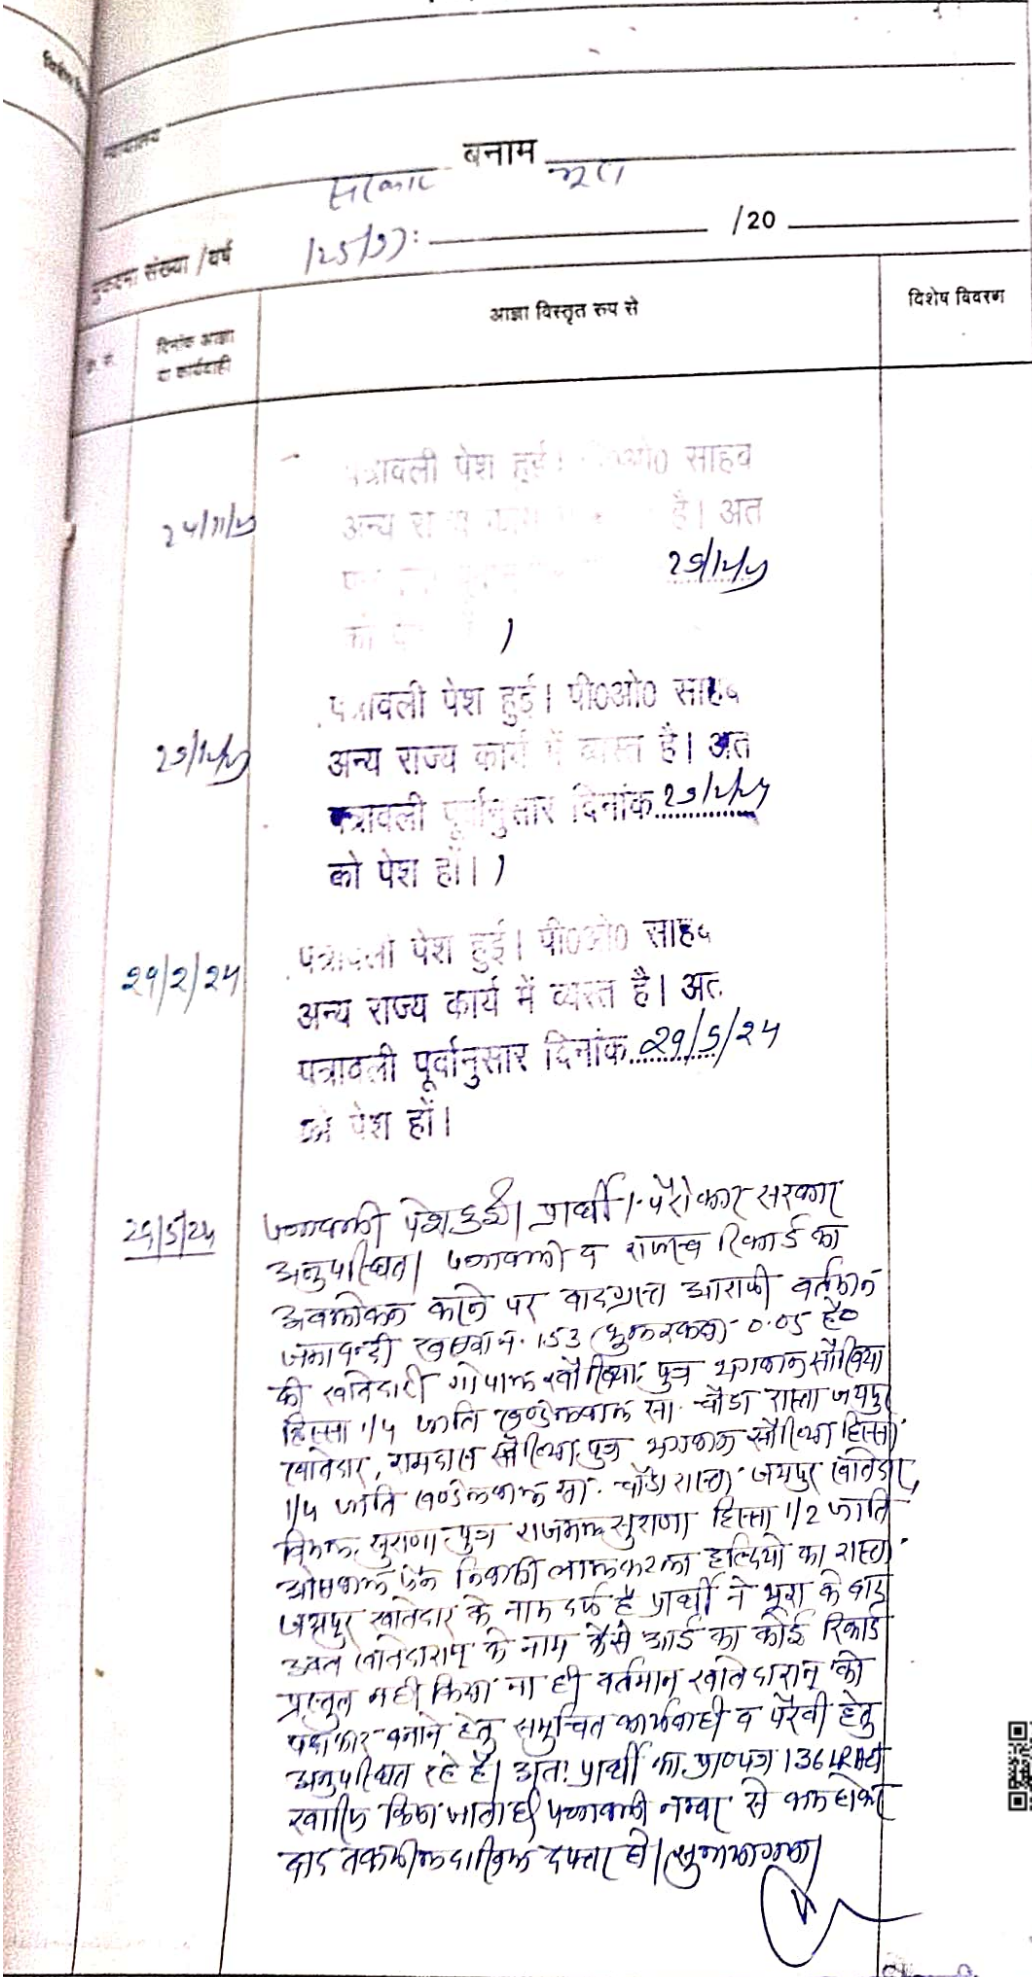 न्यायालय
बनाम
सरकार भूरा
मुकदमा संख्या /वर्ष /20
दिनांक आज्ञा
या कार्यवाही
आज्ञा विस्तृत रुप से
विशेष विवरण
पत्रावली पेश हुई। साहब
अन्य है। अत
को
पत्रावली पेश हुई। पी0ओ0 साहब
अन्य राज्य कार्य में व्यस्त है। अत
पत्रावली पूर्वानुसार दिनांक
को पेश हों।
29/2/24
पत्रावली पेश हुई। पी0ओ0 साहब
अन्य राज्य कार्य में व्यस्त है। अत
पत्रावली पूर्वानुसार दिनांक 29/5/24
को पेश हों।
29/5/24
पत्रावली पेश हुई। प्रार्थी / पैरोकार सरकार
अनुपस्थित। पत्रावली व राजस्व रिकार्ड का
अवलोकन करने पर वादग्रस्त आराजी वर्तमान
जमाबन्दी खसरा न. 153 0.05 है०
की खातेदारी गोपाल पुत्र भगवान
हिस्सा 1/4 जाति खण्डेलवाल सा. चौडा रास्ता जयपुर
खातेदार, रामदास पुत्र भगवान हिस्सा
1/4 जाति खण्डेलवाल सा. चौडा रास्ता जयपुर खातेदार,
विमल सुराणा पुत्र राजमल सुराणा हिस्सा 1/2 जाति
ओसवाल जैन निवासी लालकटला हल्दियो का रास्ता
जयपुर खातेदार के नाम दर्ज है प्रार्थी ने भूरा के बाद
उक्त खातेदारान् के नाम कैसे आई का कोई रिकार्ड
प्रस्तुत नही किया ना ही वर्तमान खातेदारान् को
पक्षकार बनाने हेतु समुचित कार्यवाही व पैरवी हेतु
अनुपस्थित रहे है। अतः प्रार्थी का प्रा०पत्र 136 LR Act
खारिज किया जाता है पत्रावली नम्बर से कम होकर
बाद तकमील दाखिल दफ्तर हो। सुनाया गया।